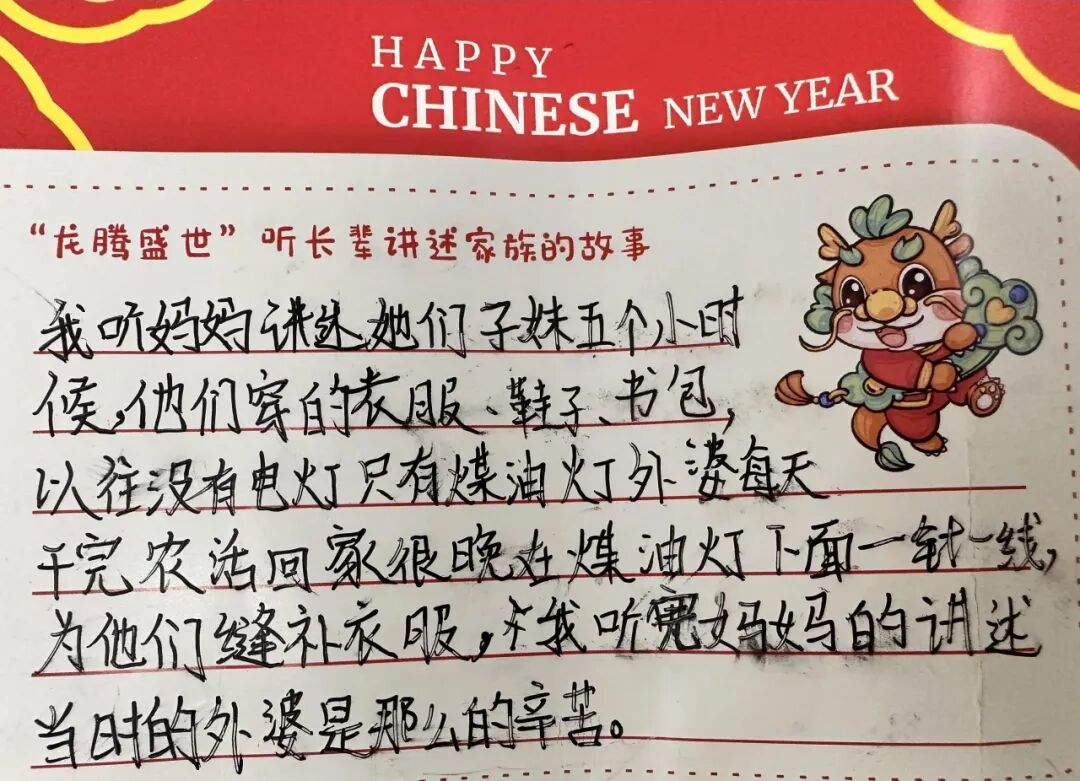 HAPPY
CHINESE NEW YEAR
“龙腾盛世”听长辈讲述家族的故事
我听妈妈讲述她们子妹五个小时
候,他们穿的衣服、鞋子、书包,
以往没有电灯只有煤油灯外婆每天
干完农活回家很晚在煤油灯下面一针一线,
为他们缝补衣服,我听完妈妈的讲述
当时的外婆是那么的辛苦。